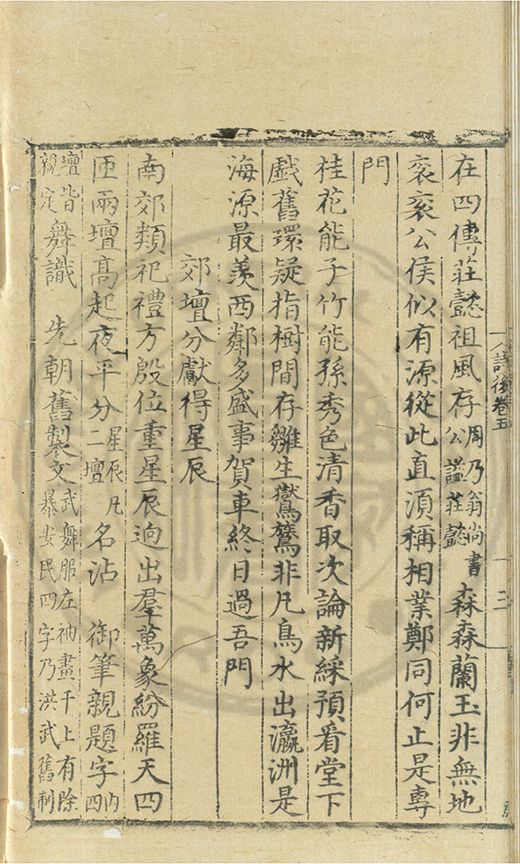 在四傳莊懿祖風存周乃翁尚書公謚莊懿森森蘭玉非無地
袞袞公侯似有源從此直須稱相業鄭同何止是專
門
桂花能子竹能孫秀色清香取次論新綵預看堂下
戲舊環疑指樹間存雛生鸑鷟非凡鳥水出瀛洲是
海源最羨西鄰多盛事賀車終日過吾門
郊壇分獻得星辰
南郊類祀禮方殷位重星辰逈出羣萬象紛羅天四
匝兩壇高起夜平分星辰凡二壇名沾 御筆親題字内四
壇皆親定舞識 先朝舊製文武舞服左袖畫干上有除暴安民四字乃洪武舊制
詩後卷五
三